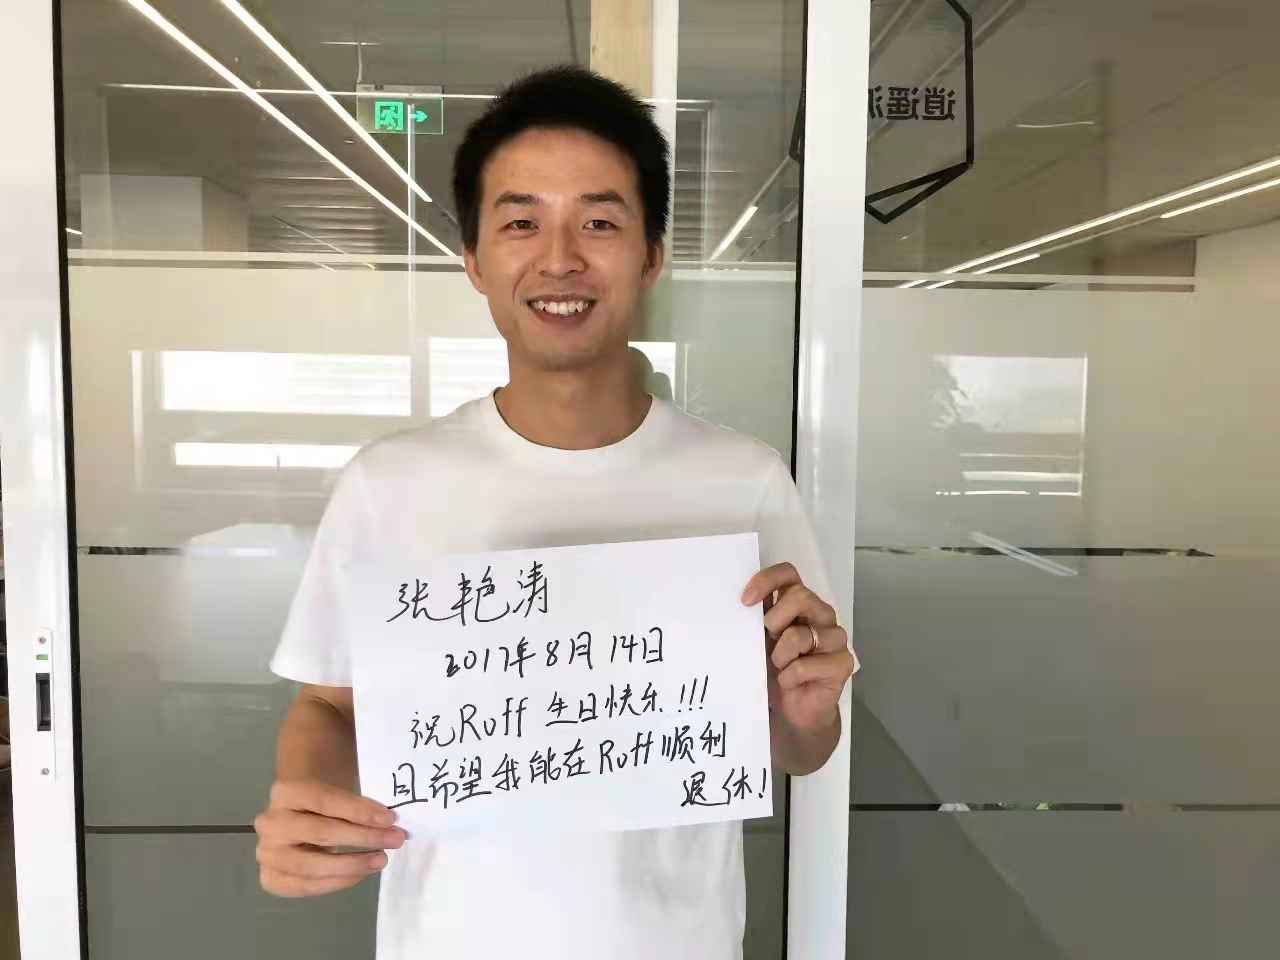 逍遥
张艳涛
2017年8月14日
祝Ruff 生日快乐!!!
且希望我能在Ruff顺利
退休!